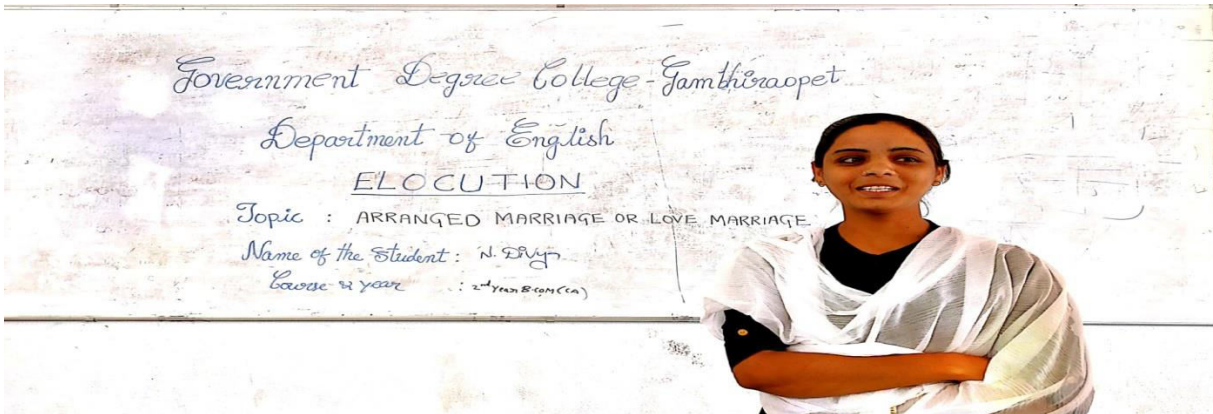 Government Degree College - Gambhiraopet
Department of English
ELOCUTION
Topic : ARRANGED MARRIAGE OR LOVE MARRIAGE
Name of the Student : N. Divya
Course & year : 2nd year B.COM (CA)